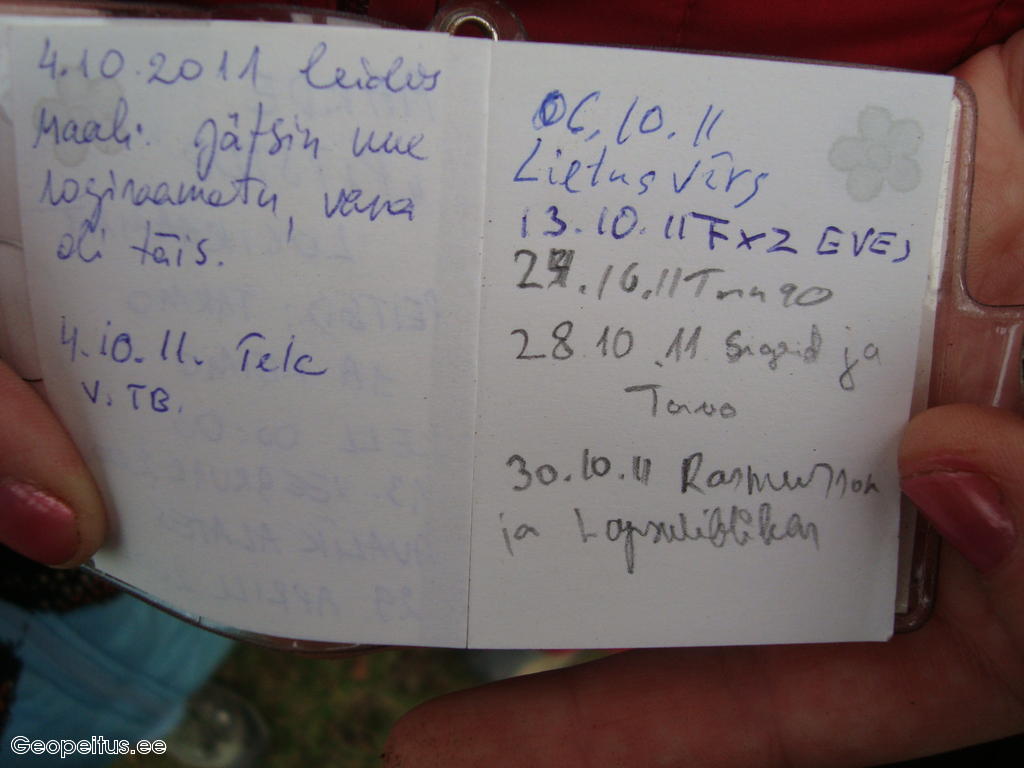 4.10.2011 leidis
Maali. Jätsin uue
logiraamatu, vana
oli täis.
4.10.11. Tele
V. TB.
06.10.11
Lietus Vīrs
13.10.11 FXZ EVEJ
28.10.11 Sigrid ja
Tarvo
30.10.11 Rasmusson
ja Lapsuliblikas
Geopeitus.ee